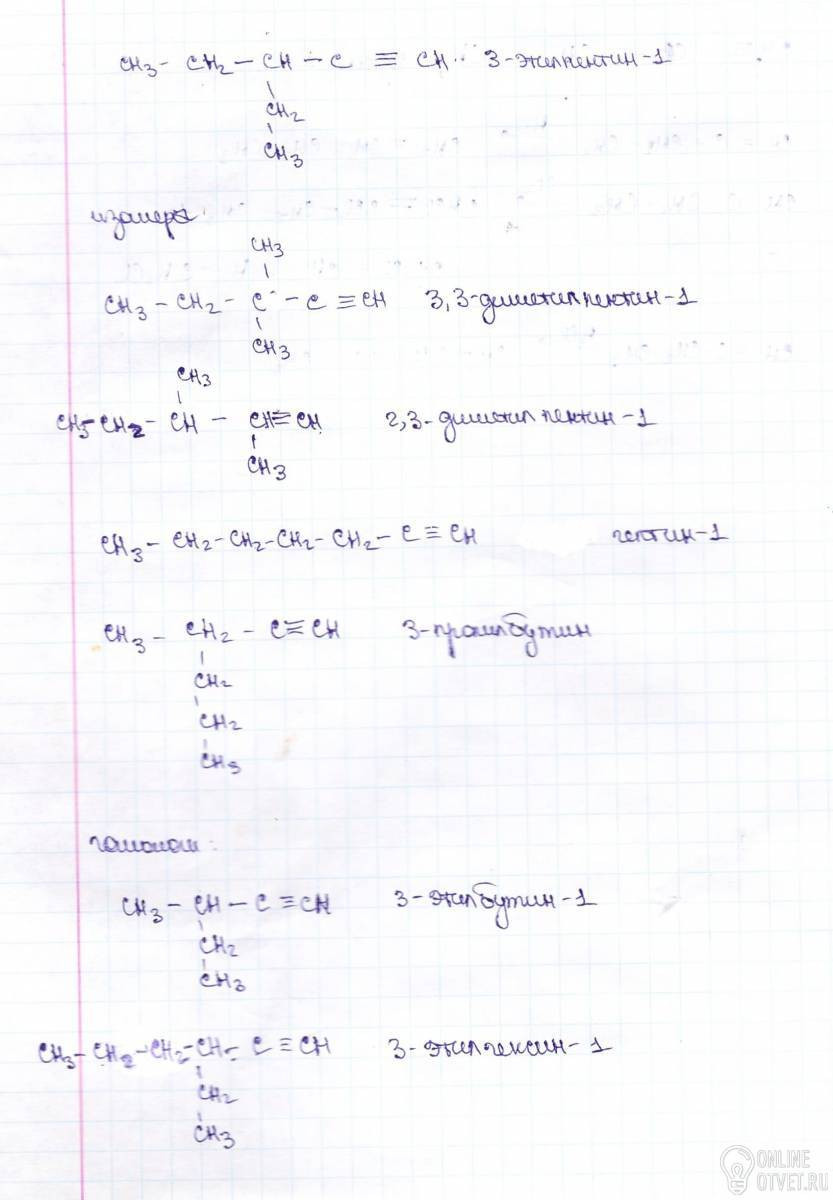 CH3 - CH2 - CH - C ≡ CH 3-этилпентин-1
CH2
CH3
изомеры:
CH3
CH3 - CH2 - C - C ≡ CH 3,3-диметилпентин-1
CH3
CH3
CH3-CH2 - CH - CH≡CH 2,3-диметилпентин-1
CH3
CH3 - CH2-CH2-CH2-CH2-C≡CH гептин-1
CH3 - CH2 - C≡CH 3-пропилбутин
CH2
CH2
CH3
гомологи:
CH3 - CH - C ≡CH 3-этилбутин-1
CH2
CH3
CH3-CH2-CH2-CH- C ≡ CH 3-этилгексин-1
CH2
CH3
ONLINE
OTVET.RU